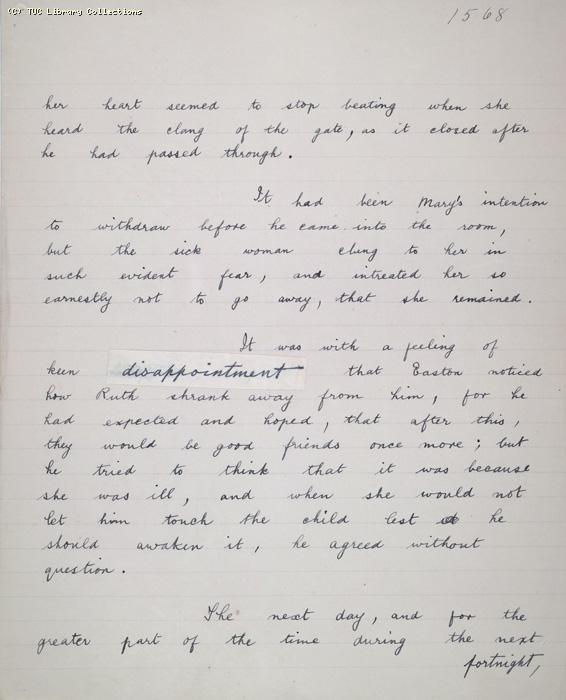 (C) TUC Library Collections
1568
her heart seemed to stop beating when she
heard the clang of the gate, as it closed after
he had passed through.
It had been Mary's intention
to withdraw before he came into the room,
but the sick woman clung to her in
such evident fear, and intreated her so
earnestly not to go away, that she remained.
It was with a feeling of
keen disappointment that Easton noticed
how Ruth shrank away from him, for he
had expected and hoped, that after this,
they would be good friends once more; but
he tried to think that it was because
she was ill, and when she would not
let him touch the child lest he
should awaken it, he agreed without
question.
The next day, and for the
greater part of the time during the next
fortnight,